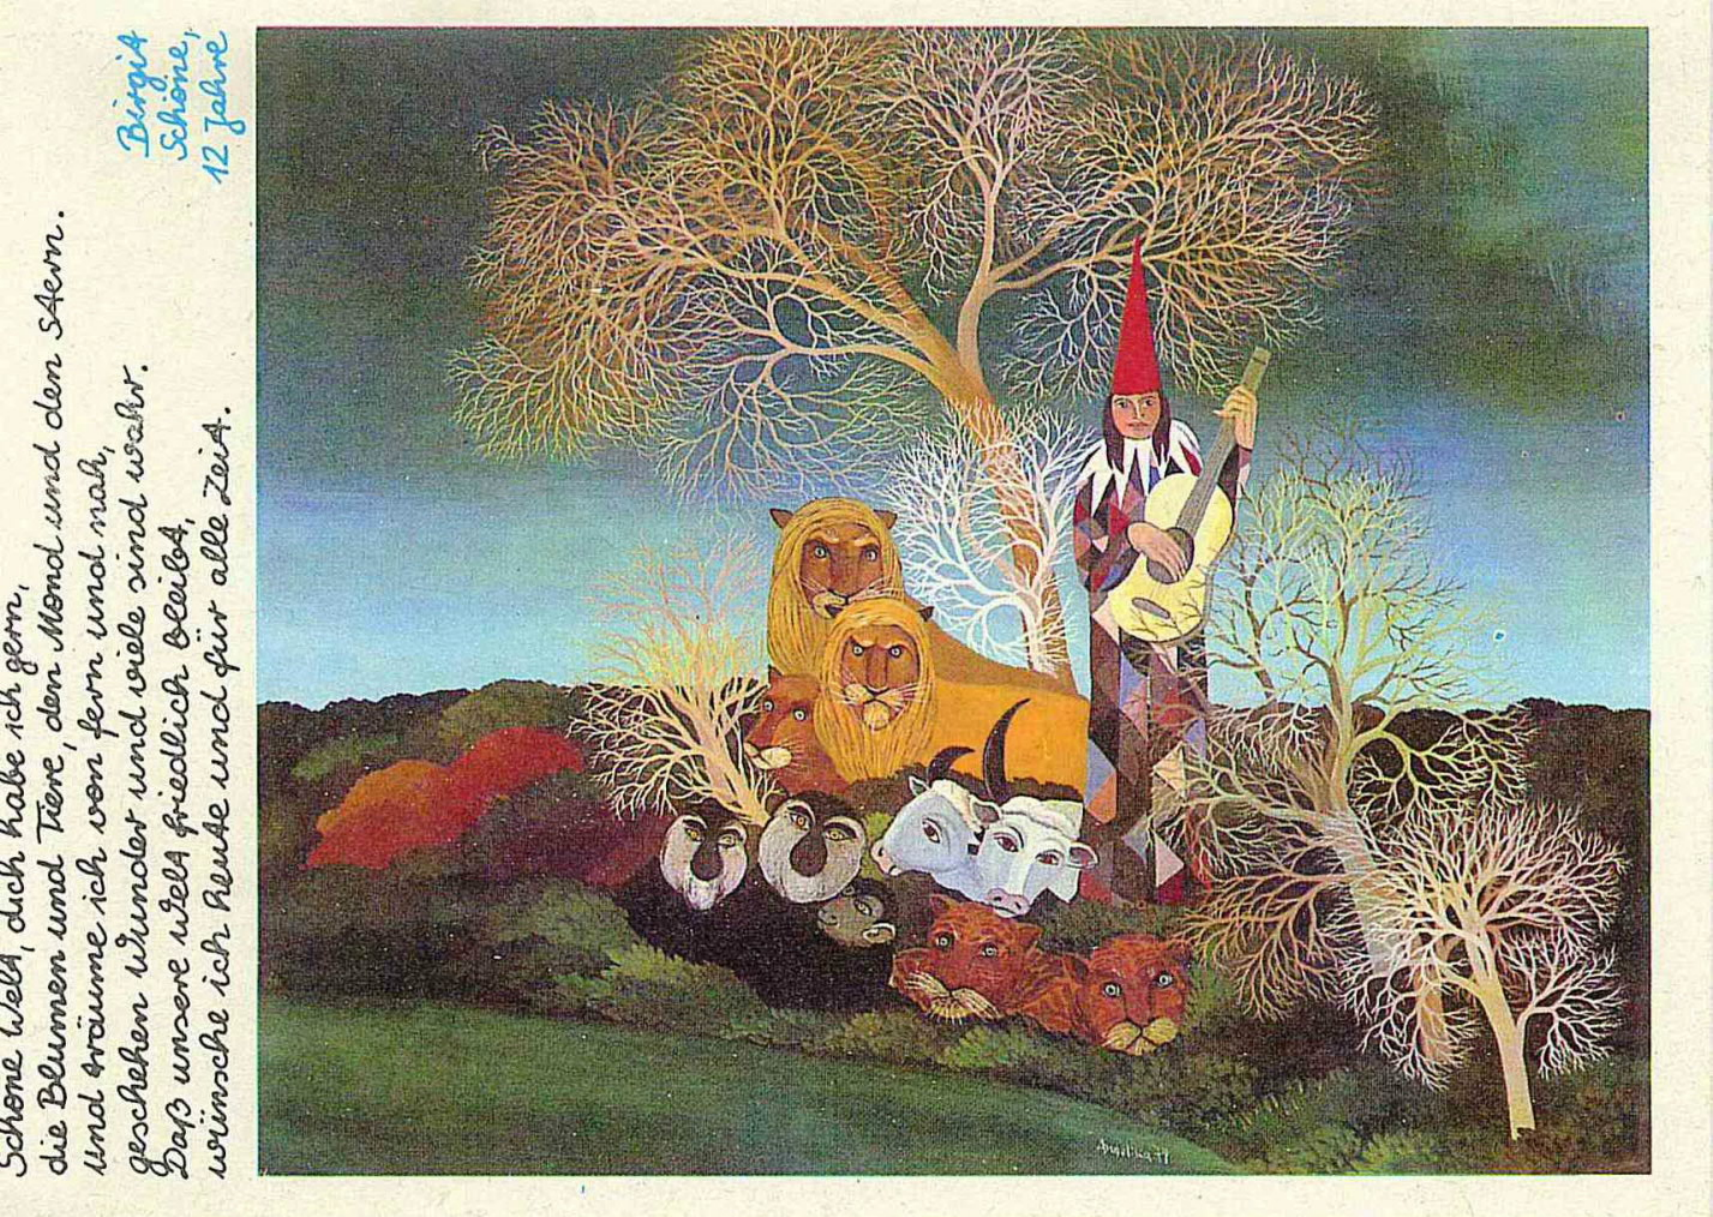 Schöne Welt, dich habe ich gern,
die Blumen und Tiere, den Mond und den Stern.
Und träume ich von fern und nah,
geschehen Wunder und viele sind wahr.
Daß unsere Welt friedlich bleibt,
wünsche ich heute und für alle Zeit.
Birgit
Schöne,
12 Jahre
Angelika 79